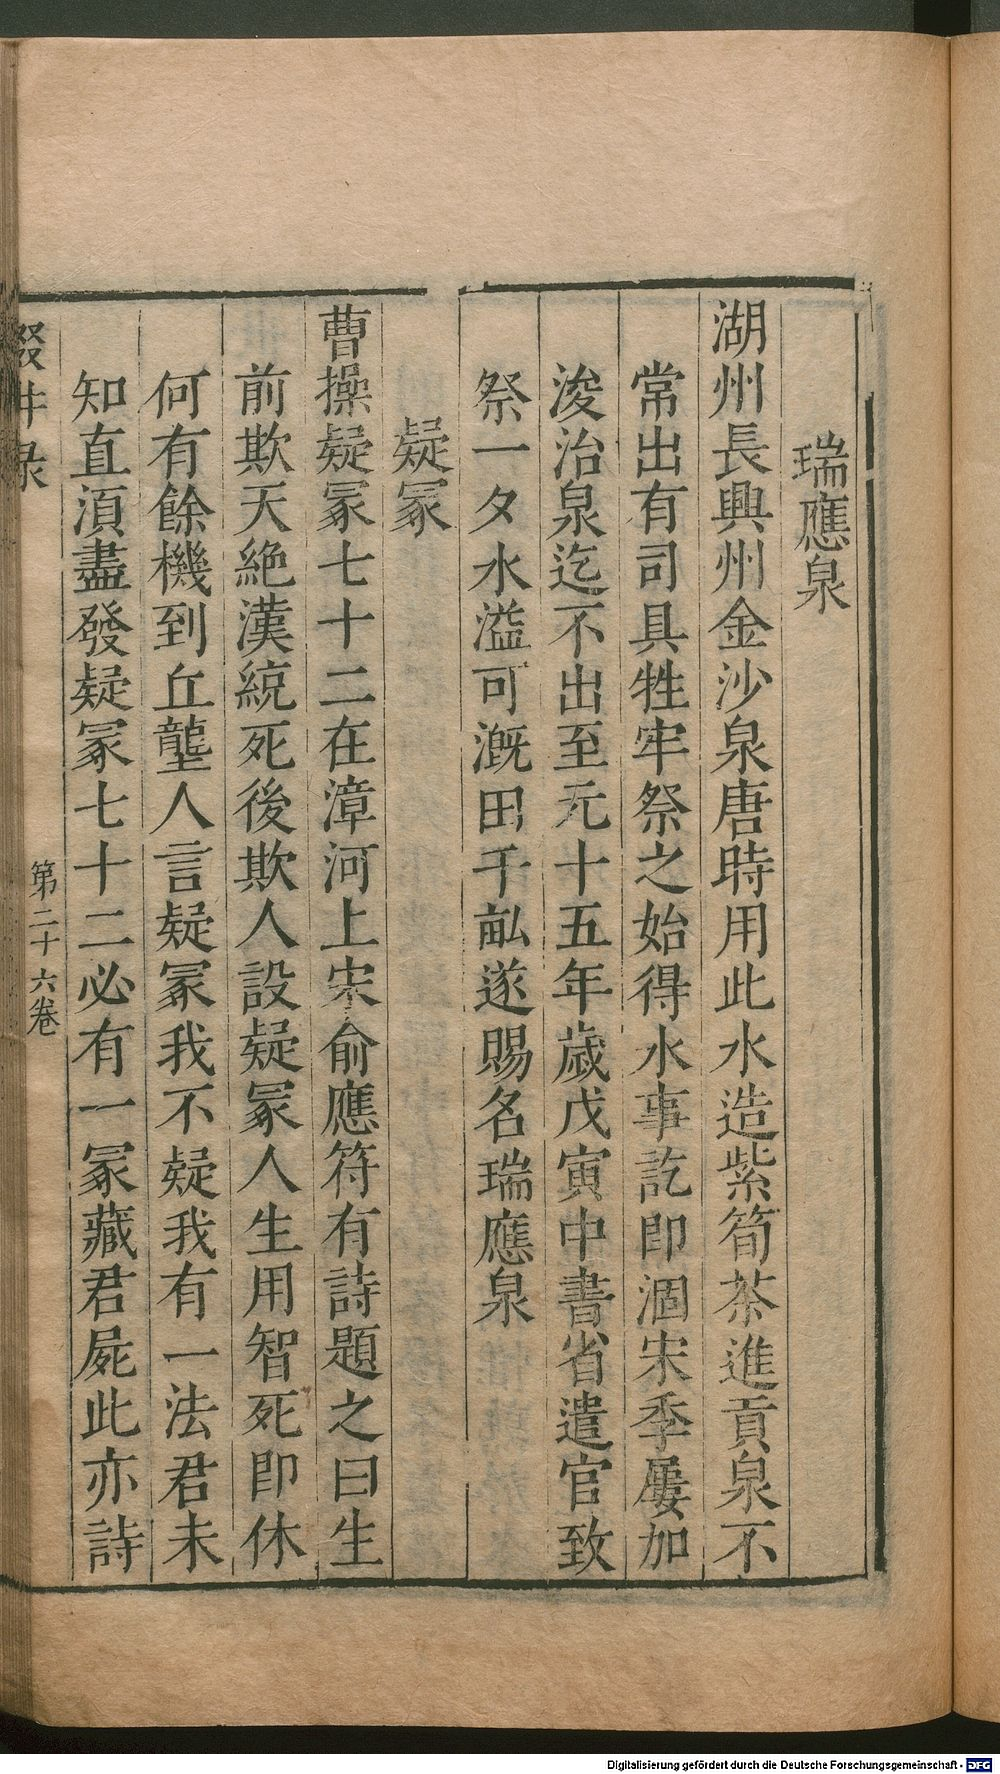 瑞應泉
湖州長興州金沙泉唐時用此水造紫筍茶進貢泉不
常出有司具牲牢祭之始得水事訖即涸宋季屢加
浚治泉迄不出至元十五年歲戊寅中書省遣官致
祭一夕水溢可溉田千畝遂賜名瑞應泉
疑冢
曹操疑冢七十二在漳河上宋俞應符有詩題之曰生
前欺天絕漢統死後欺人設疑冢人生用智死即休
何有餘機到丘壟人言疑冢我不疑我有一法君未
知直須盡發疑冢七十二必有一冢藏君屍此亦詩
輟畊录
第二十六卷
Digitalisierung gefördert durch die Deutsche Forschungsgemeinschaft - DFG